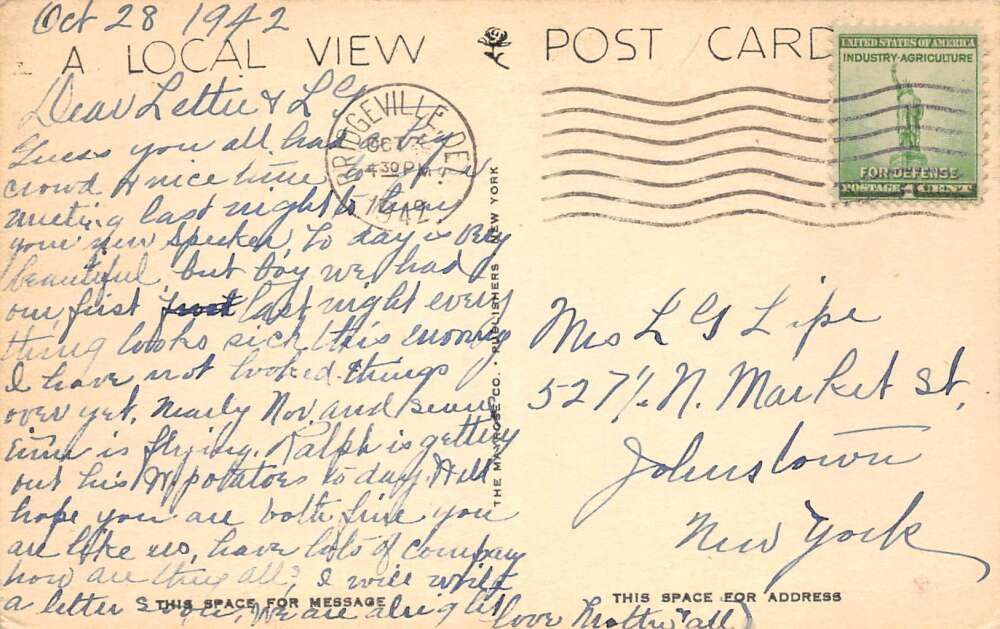 Oct 28 1942
A LOCAL VIEW
POST CARD
Dear Lettie & L G
Guess you all had a big
crowd & nice time to your
meeting last night to hear
your new speaker. To day is very
beautiful, but boy we had
our first last night every
thing looks sick this morning
I have not looked things
over yet. Nearly Nov. and
time is flying. Ralph is getting
out his W potatoes to day. Well
hope you are both fine you
are like us, have lots of company
how are they all? I will write
a letter soon, we are alright
love Mother & all
THIS SPACE FOR MESSAGE
THE MAYROSE CO. · PUBLISHERS · NEW YORK
BRIDGEVILLE, DEL.
OCT
4 30 PM
1942
UNITED STATES OF AMERICA
INDUSTRY-AGRICULTURE
FOR DEFENSE
POSTAGE 1 CENT
Mrs L G Lipe
527½ N. Market St.
Johnstown
New York
THIS SPACE FOR ADDRESS